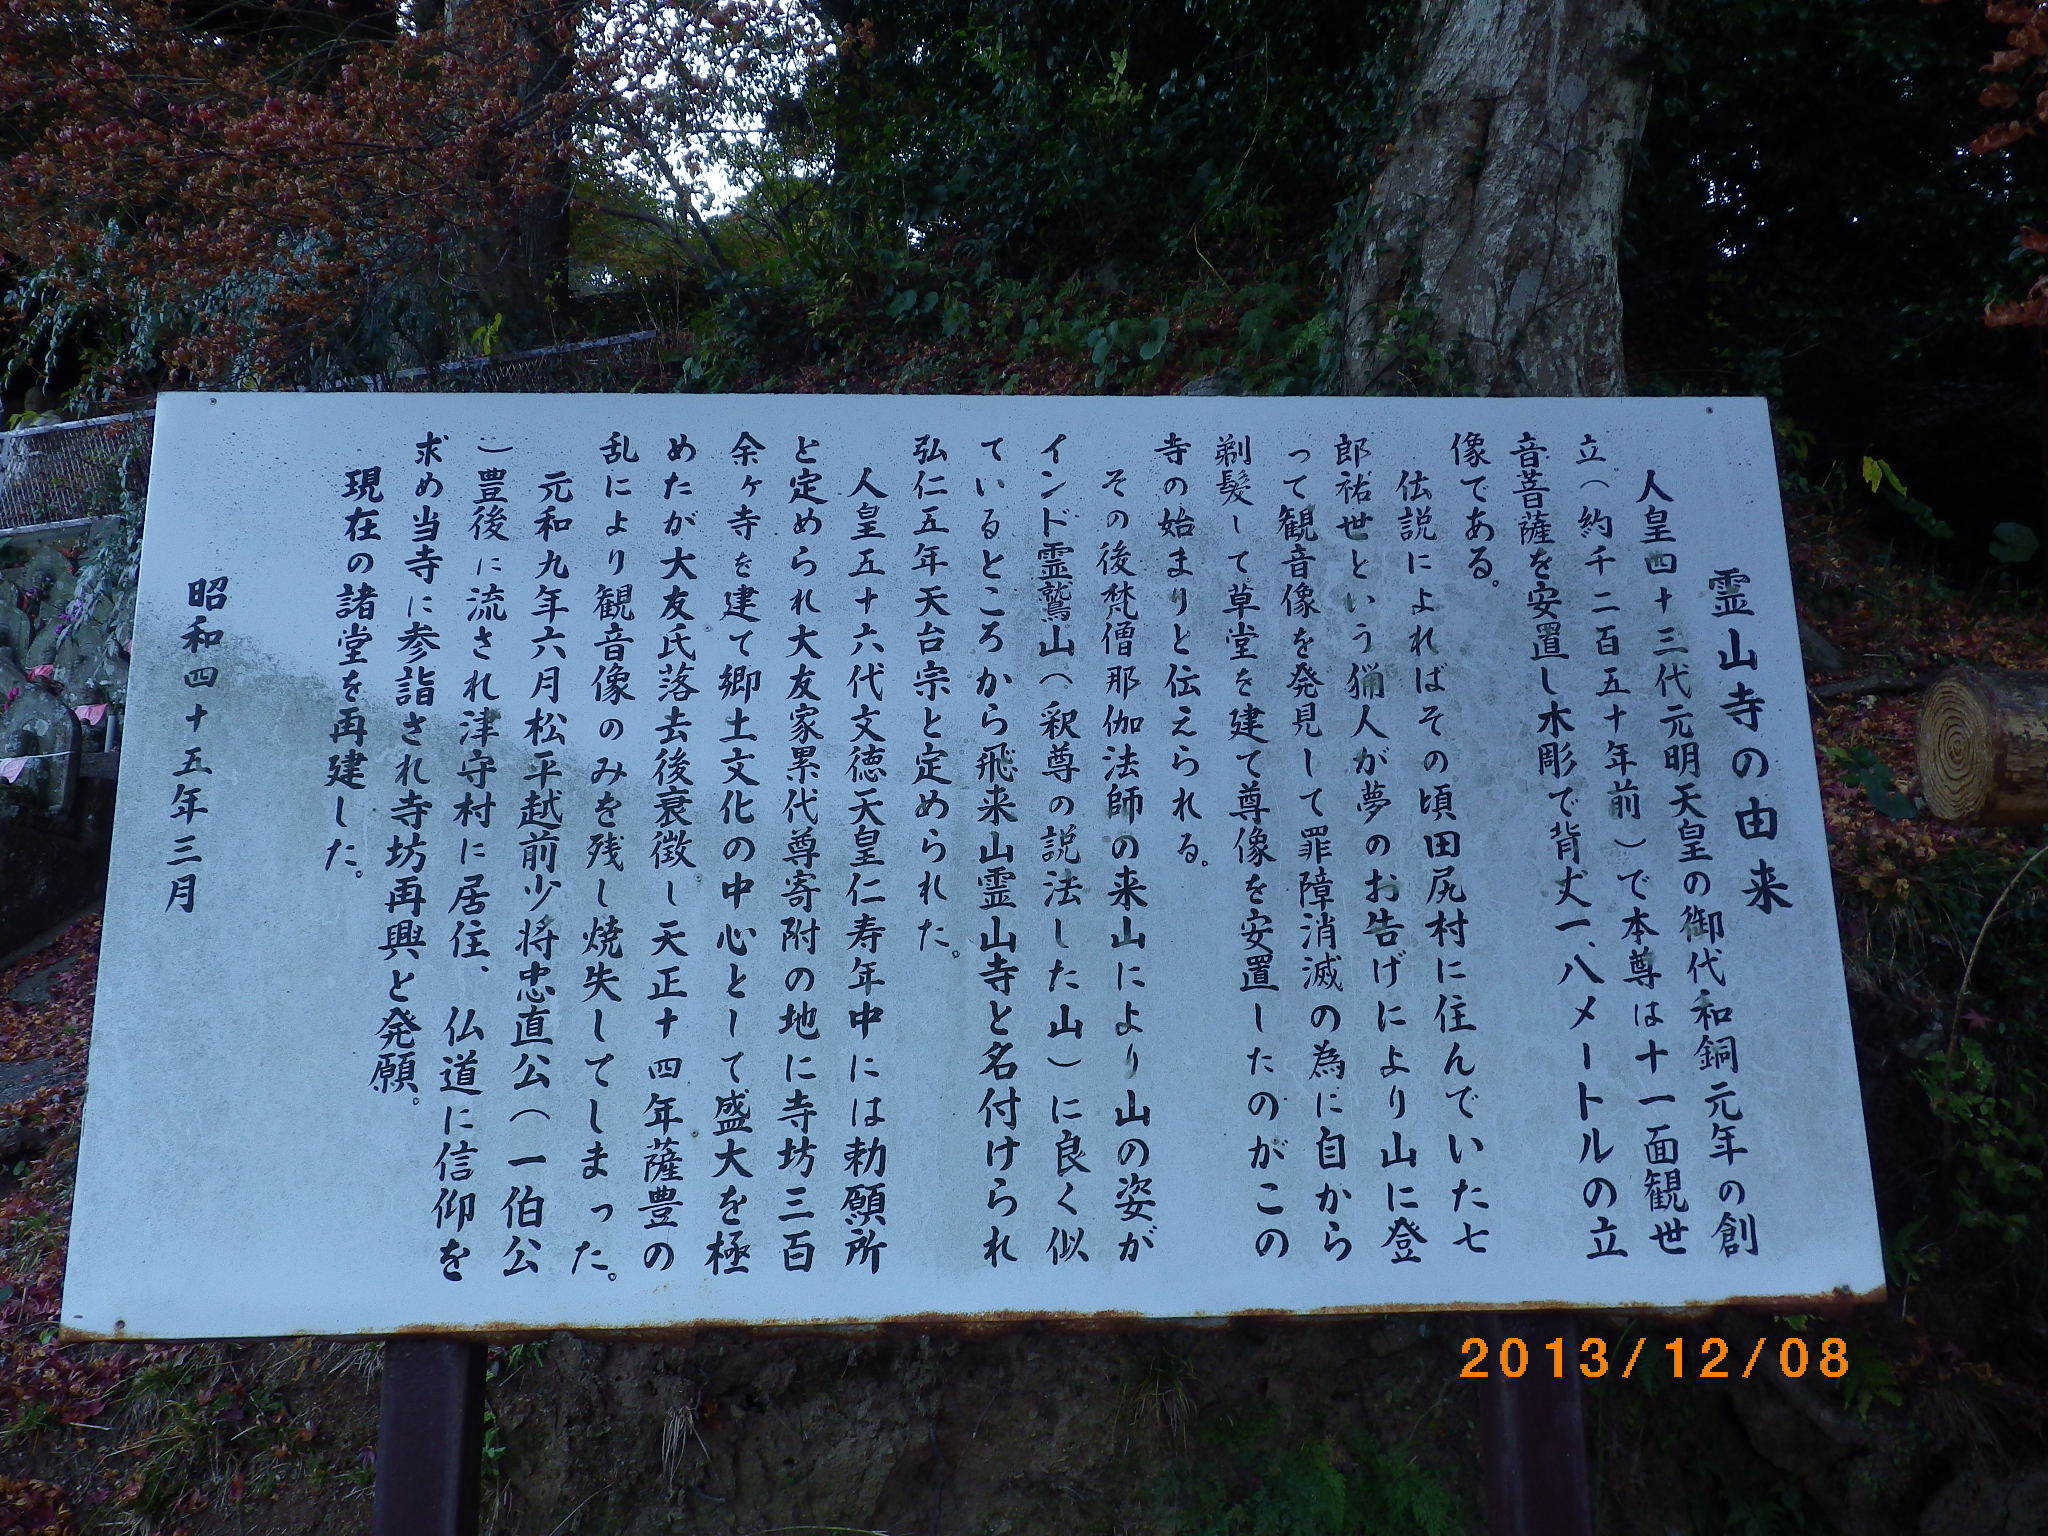 霊山寺の由来
人皇四十三代元明天皇の御代和銅元年の創
立（約千二百五十年前）で本尊は十一面観世
音菩薩を安置し木彫で背丈一、八メートルの立
像である。
伝説によればその頃田尻村に住んでいた七
郎祐世という猟人が夢のお告げにより山に登
って観音像を発見して罪障消滅の為に自から
剃髪して草堂を建て尊像を安置したのがこの
寺の始まりと伝えられる。
その後梵僧那伽法師の来山により山の姿が
インド霊鷲山（釈尊の説法した山）に良く似
ているところから飛来山霊山寺と名付けられ
弘仁五年天台宗と定められた。
人皇五十六代文徳天皇仁寿年中には勅願所
と定められ大友家累代尊寄附の地に寺坊三百
余ヶ寺を建て郷土文化の中心として盛大を極
めたが大友氏落去後衰微し天正十四年薩豊の
乱により観音像のみを残し焼失してしまった。
元和九年六月松平越前少将忠直公（一伯公
）豊後に流され津守村に居住、仏道に信仰を
求め当寺に参詣され寺坊再興と発願。
現在の諸堂を再建した。
昭和四十五年三月
2013/12/08